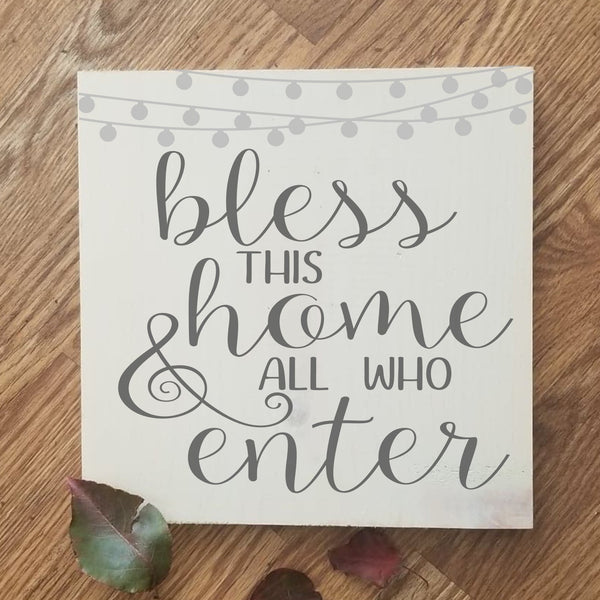 bless
THIS
home
& ALL WHO
enter